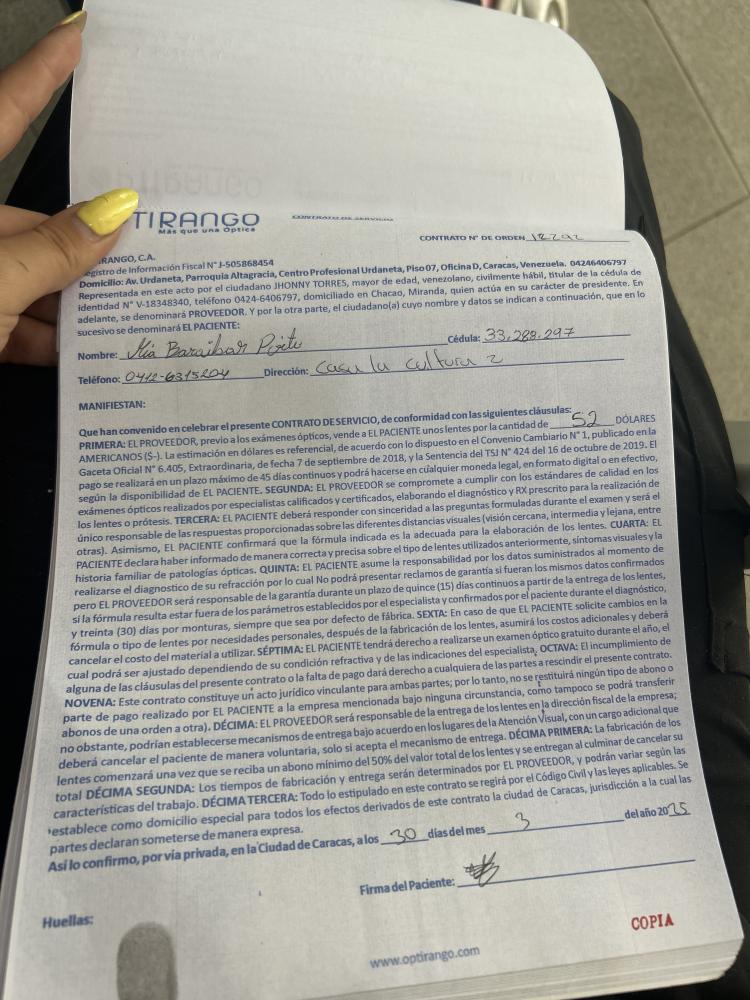 TIRANGO
Más que una Óptica
CONTRATO DE SERVICIO
CONTRATO N° DE ORDEN 12292
RANGO, C.A.
egistro de Información Fiscal N° J-505868454
Domicilio: Av. Urdaneta, Parroquia Altagracia, Centro Profesional Urdaneta, Piso 07, Oficina D, Caracas, Venezuela. 04246406797
Representada en este acto por el ciudadano JHONNY TORRES, mayor de edad, venezolano, civilmente hábil, titular de la cédula de
identidad N° V-18348340, teléfono 0424-6406797, domiciliado en Chacao, Miranda, quien actúa en su carácter de presidente. En
adelante, se denominará PROVEEDOR. Y por la otra parte, el ciudadano(a) cuyo nombre y datos se indican a continuación, que en lo
sucesivo se denominará EL PACIENTE:
Nombre: Mia Baraibar Cédula: 33.288.297
Teléfono: 0412-6315204 Dirección: Casa la cultura 2
MANIFIESTAN:
Que han convenido en celebrar el presente CONTRATO DE SERVICIO, de conformidad con las siguientes cláusulas:
PRIMERA: EL PROVEEDOR, previo a los exámenes ópticos, vende a EL PACIENTE unos lentes por la cantidad de 52 DÓLARES
AMERICANOS ($-). La estimación en dólares es referencial, de acuerdo con lo dispuesto en el Convenio Cambiario N° 1, publicado en la
Gaceta Oficial N° 6.405, Extraordinaria, de fecha 7 de septiembre de 2018, y la Sentencia del TSJ N° 424 del 16 de octubre de 2019. El
pago se realizará en un plazo máximo de 45 días continuos y podrá hacerse en cualquier moneda legal, en formato digital o en efectivo,
según la disponibilidad de EL PACIENTE. SEGUNDA: EL PROVEEDOR se compromete a cumplir con los estándares de calidad en los
exámenes ópticos realizados por especialistas calificados y certificados, elaborando el diagnóstico y RX prescrito para la realización de
los lentes o prótesis. TERCERA: EL PACIENTE deberá responder con sinceridad a las preguntas formuladas durante el examen y será el
único responsable de las respuestas proporcionadas sobre las diferentes distancias visuales (visión cercana, intermedia y lejana, entre
otras). Asimismo, EL PACIENTE confirmará que la fórmula indicada es la adecuada para la elaboración de los lentes. CUARTA: EL
PACIENTE declara haber informado de manera correcta y precisa sobre el tipo de lentes utilizados anteriormente, síntomas visuales y la
historia familiar de patologías ópticas. QUINTA: EL PACIENTE asume la responsabilidad por los datos suministrados al momento de
realizarse el diagnostico de su refracción por lo cual No podrá presentar reclamos de garantía si fueran los mismos datos confirmados
pero EL PROVEEDOR será responsable de la garantía durante un plazo de quince (15) días continuos a partir de la entrega de los lentes,
si la fórmula resulta estar fuera de los parámetros establecidos por el especialista y confirmados por el paciente durante el diagnóstico,
y treinta (30) días por monturas, siempre que sea por defecto de fábrica. SEXTA: En caso de que EL PACIENTE solicite cambios en la
fórmula o tipo de lentes por necesidades personales, después de la fabricación de los lentes, asumirá los costos adicionales y deberá
cancelar el costo del material a utilizar. SÉPTIMA: EL PACIENTE tendrá derecho a realizarse un examen óptico gratuito durante el año, el
cual podrá ser ajustado dependiendo de su condición refractiva y de las indicaciones del especialista. OCTAVA: El incumplimiento de
alguna de las cláusulas del presente contrato o la falta de pago dará derecho a cualquiera de las partes a rescindir el presente contrato.
NOVENA: Este contrato constituye un acto jurídico vinculante para ambas partes; por lo tanto, no se restituirá ningún tipo de abono o
parte de pago realizado por EL PACIENTE a la empresa mencionada bajo ninguna circunstancia, como tampoco se podrá transferir
abonos de una orden a otra). DÉCIMA: EL PROVEEDOR será responsable de la entrega de los lentes en la dirección fiscal de la empresa;
no obstante, podrían establecerse mecanismos de entrega bajo acuerdo en los lugares de la Atención Visual, con un cargo adicional que
deberá cancelar el paciente de manera voluntaria, solo si acepta el mecanismo de entrega. DÉCIMA PRIMERA: La fabricación de los
lentes comenzará una vez que se reciba un abono mínimo del 50% del valor total de los lentes y se entregan al culminar de cancelar su
total DÉCIMA SEGUNDA: Los tiempos de fabricación y entrega serán determinados por EL PROVEEDOR, y podrán variar según las
características del trabajo. DÉCIMA TERCERA: Todo lo estipulado en este contrato se regirá por el Código Civil y las leyes aplicables. Se
establece como domicilio especial para todos los efectos derivados de este contrato la ciudad de Caracas, jurisdicción a la cual las
partes declaran someterse de manera expresa.
Así lo confirmo, por vía privada, en la Ciudad de Caracas, a los 30 días del mes 3 del año 2025
Firma del Paciente:
Huellas:
COPIA
www.optirango.com